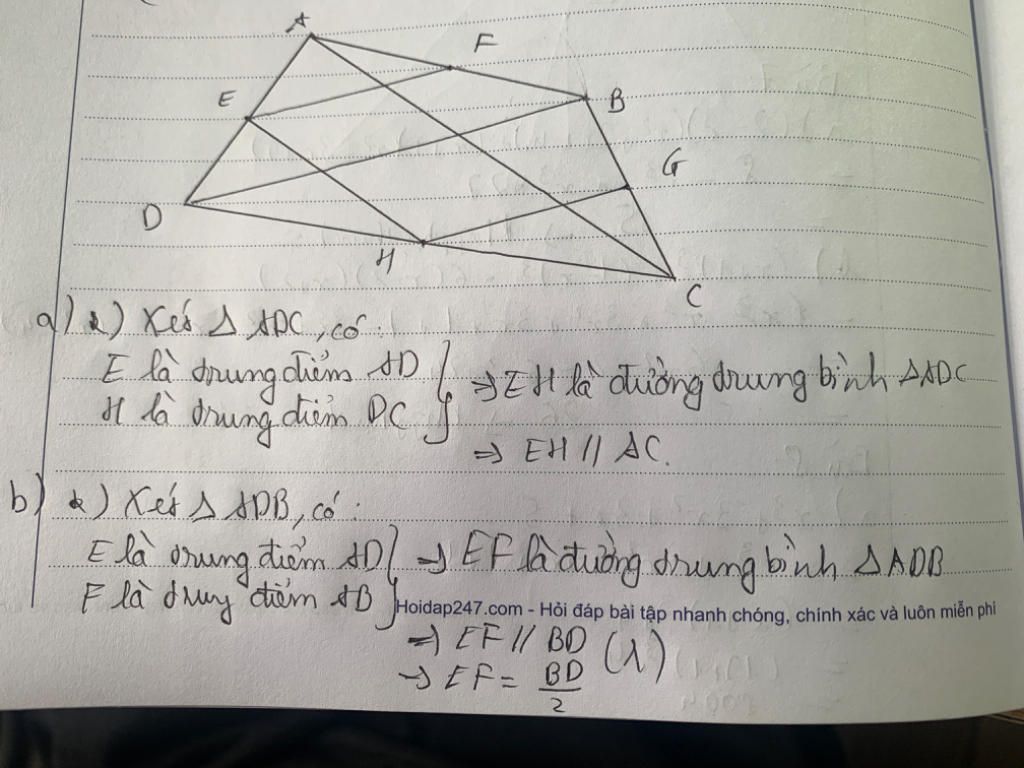 A
F
E
B
G
D
H
C
a) *) Xét Δ ADC, có:
E là trung điểm AD
H là trung điểm DC
⇒ EH là đường trung bình ΔADC
⇒ EH // AC.
b) *) Xét Δ ADB, có:
E là trung điểm AD
F là trung điểm AB
⇒ EF là đường trung bình ΔADB
Hoidap247.com - Hỏi đáp bài tập nhanh chóng, chính xác và luôn miễn phí
⇒ EF // BD (1)
⇒ EF = BD/2